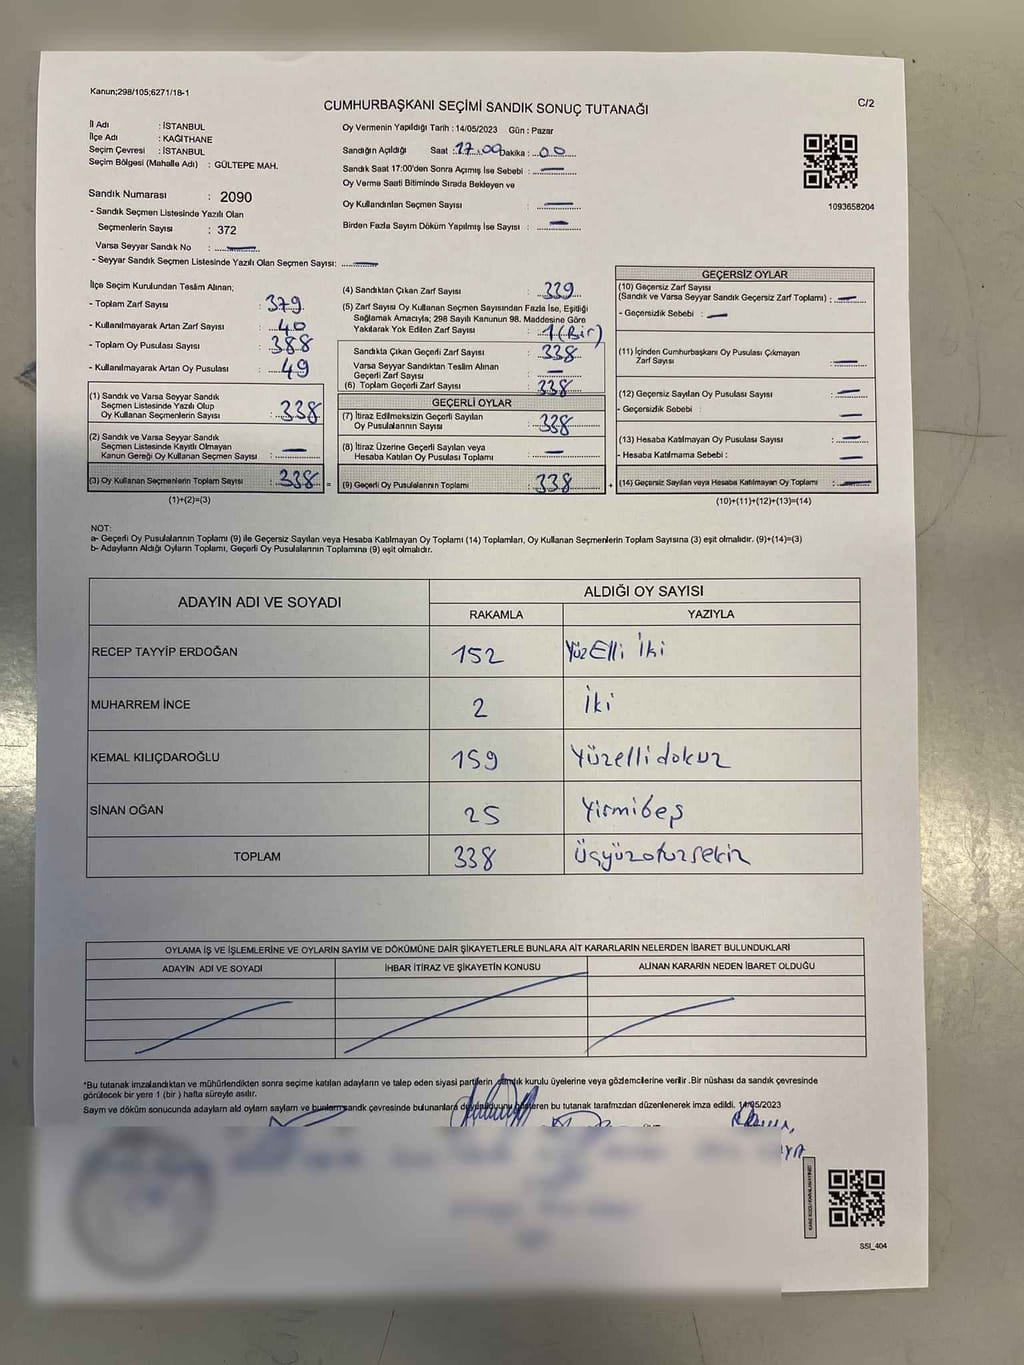 Kanun;298/105;6271/18-1
CUMHURBAŞKANI SEÇİMİ SANDIK SONUÇ TUTANAĞI
C/2
İl Adı : İSTANBUL
İlçe Adı : KAĞITHANE
Seçim Çevresi : İSTANBUL
Seçim Bölgesi (Mahalle Adı) : GÜLTEPE MAH.
Oy Vermenin Yapıldığı Tarih : 14/05/2023 Gün : Pazar
Sandığın Açıldığı Saat : 17.00 Dakika : 00
Sandık Saat 17:00'den Sonra Açımış İse Sebebi : —
Oy Verme Saati Bitiminde Sırada Bekleyen ve
Oy Kullandırılan Seçmen Sayısı : —
Birden Fazla Sayım Döküm Yapılmış İse Sayısı : —
1093658204
Sandık Numarası : 2090
- Sandık Seçmen Listesinde Yazılı Olan
Seçmenlerin Sayısı : 372
Varsa Seyyar Sandık No : —
- Seyyar Sandık Seçmen Listesinde Yazılı Olan Seçmen Sayısı: —
İlçe Seçim Kurulundan Teslim Alınan;
- Toplam Zarf Sayısı : 379
- Kullanılmayarak Artan Zarf Sayısı : 40
- Toplam Oy Pusulası Sayısı : 388
- Kullanılmayarak Artan Oy Pusulası : 49
(1) Sandık ve Varsa Seyyar Sandık
Seçmen Listesinde Yazılı Olup
Oy Kullanan Seçmenlerin Sayısı : 338
(2) Sandık ve Varsa Seyyar Sandık
Seçmen Listesinde Kayıtlı Olmayan
Kanun Gereği Oy Kullanan Seçmen Sayısı : —
(3) Oy Kullanan Seçmenlerin Toplam Sayısı : 338 =
(1)+(2)=(3)
(4) Sandıktan Çıkan Zarf Sayısı : 339
(5) Zarf Sayısı Oy Kullanan Seçmen Sayısından Fazla İse, Eşitliği
Sağlamak Amacıyla; 298 Sayılı Kanunun 98. Maddesine Göre
Yakılarak Yok Edilen Zarf Sayısı : 1 (Bir)
Sandıkta Çıkan Geçerli Zarf Sayısı : 338
Varsa Seyyar Sandıktan Teslim Alınan
Geçerli Zarf Sayısı : —
(6) Toplam Geçerli Zarf Sayısı : 338
GEÇERLİ OYLAR
(7) İtiraz Edilmeksizin Geçerli Sayılan
Oy Pusulalarının Sayısı : 338
(8) İtiraz Üzerine Geçerli Sayılan veya
Hesaba Katılan Oy Pusulası Toplamı : —
(9) Geçerli Oy Pusulalarının Toplamı : 338 +
GEÇERSİZ OYLAR
(10) Geçersiz Zarf Sayısı
(Sandık ve Varsa Seyyar Sandık Geçersiz Zarf Toplamı) : —
- Geçersizlik Sebebi : —
(11) İçinden Cumhurbaşkanı Oy Pusulası Çıkmayan
Zarf Sayısı : —
(12) Geçersiz Sayılan Oy Pusulası Sayısı : —
- Geçersizlik Sebebi : —
(13) Hesaba Katılmayan Oy Pusulası Sayısı : —
- Hesaba Katılmama Sebebi : —
(14) Geçersiz Sayılan veya Hesaba Katılmayan Oy Toplamı : —
(10)+(11)+(12)+(13)=(14)
NOT:
a- Geçerli Oy Pusulalarının Toplamı (9) ile Geçersiz Sayılan veya Hesaba Katılmayan Oy Toplamı (14) Toplamları, Oy Kullanan Seçmenlerin Toplam Sayısına (3) eşit olmalıdır. (9)+(14)=(3)
b- Adayların Aldığı Oyların Toplamı, Geçerli Oy Pusulalarının Toplamına (9) eşit olmalıdır.
ADAYIN ADI VE SOYADI
ALDIĞI OY SAYISI
RAKAMLA YAZIYLA
RECEP TAYYİP ERDOĞAN 152 YüzElli İki
MUHARREM İNCE 2 İki
KEMAL KILIÇDAROĞLU 159 Yüzellidokuz
SİNAN OĞAN 25 Yirmibeş
TOPLAM 338 Üçyüzotuzsekiz
OYLAMA İŞ VE İŞLEMLERİNE VE OYLARIN SAYIM VE DÖKÜMÜNE DAİR ŞİKAYETLERLE BUNLARA AİT KARARLARIN NELERDEN İBARET BULUNDUKLARI
ADAYIN ADI VE SOYADI İHBAR İTİRAZ VE ŞİKAYETİN KONUSU ALINAN KARARIN NEDEN İBARET OLDUĞU
*Bu tutanak imzalandıktan ve mühürlendikten sonra seçime katılan adayların ve talep eden siyasi partilerin sandık kurulu üyelerine veya gözlemcilerine verilir .Bir nüshası da sandık çevresinde
görülecek bir yere 1 (bir ) hafta süreyle asılır.
Sayım ve döküm sonucunda adayların aldı oyların sayılam ve bunların sandık çevresinde bulunanlara duyurulduğunu gösteren bu tutanak tarafımzdan düzenlenerek imza edildi. 14/05/2023
SSI_404